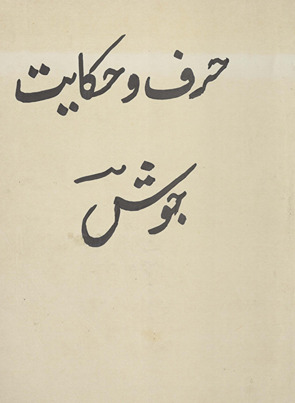 حرف و حکایت
جوش